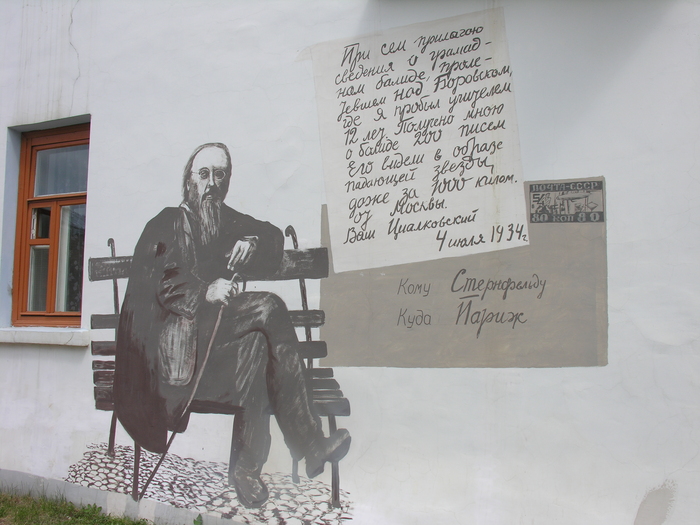 При сем прилагаю
сведения о громад-
ном балиде, проле-
тевшем над Боровском,
где я пробыл учителем
12 лет. Получено мною
о балиде 200 писем
Его видели в образе
падающей звезды
даже за 1000 килом.
от Москвы.
Ваш Циалковский
4 июля 1934 г.
ПОЧТА-СССР
80 КОП 80
Кому Стернфельду
Куда Париж